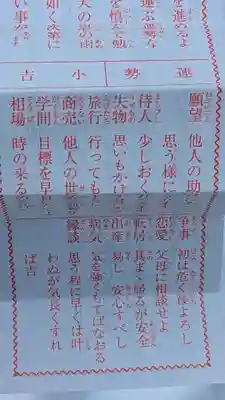 を進めるよ
運ぶ運勢な
を慎
如く次第に
い事
運勢 小吉
願望 他人の助
思う様に
待人 少しおく
失物 思いもかけ
旅行 行っても
商売 他人の世
学問 目標を早
相場 時の来る
争事 初は危し後よろし
恋愛 父母に相談せよ
転居 其まま居るが安全
出産 易し 安心すべし
病気 気を強くもてばなおる
縁談 思う程に早くは叶
わぬが気長くすれ
ば吉